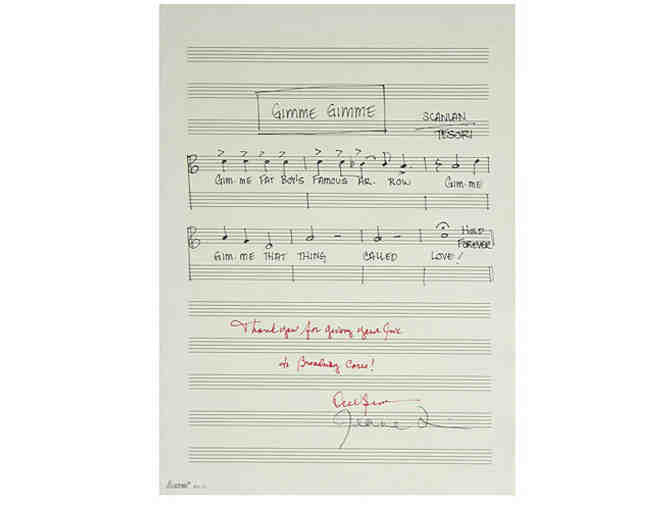 GIMME GIMME
SCANLAN
TESORI
GIM-ME FAT BOY'S FAMOUS AR-ROW GIM-ME
GIM-ME THAT THING CALLED LOVE!
HOLD
FOREVER
Thank you for giving your love
to Broadway Cares!
Jeanine